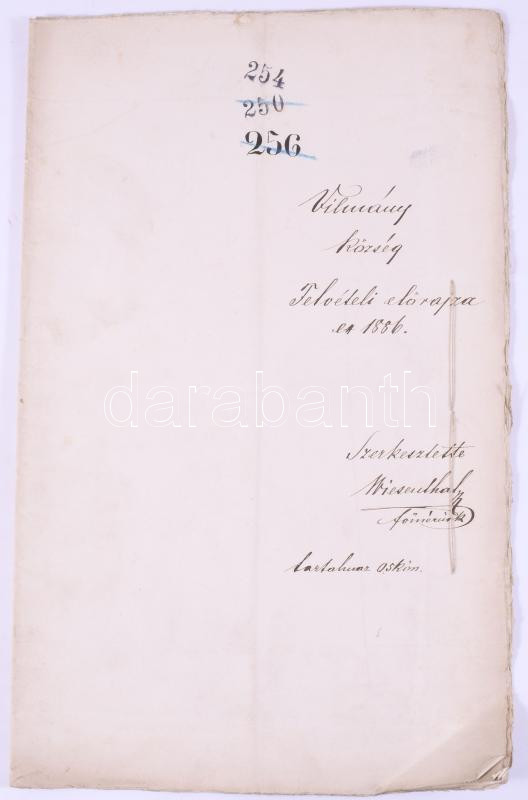 254
250
256
Vilmány
község
Felvételi előrajza
1886.
darabanth
Szerkesztette
Wiesenthal
főmérnök
tartalmaz